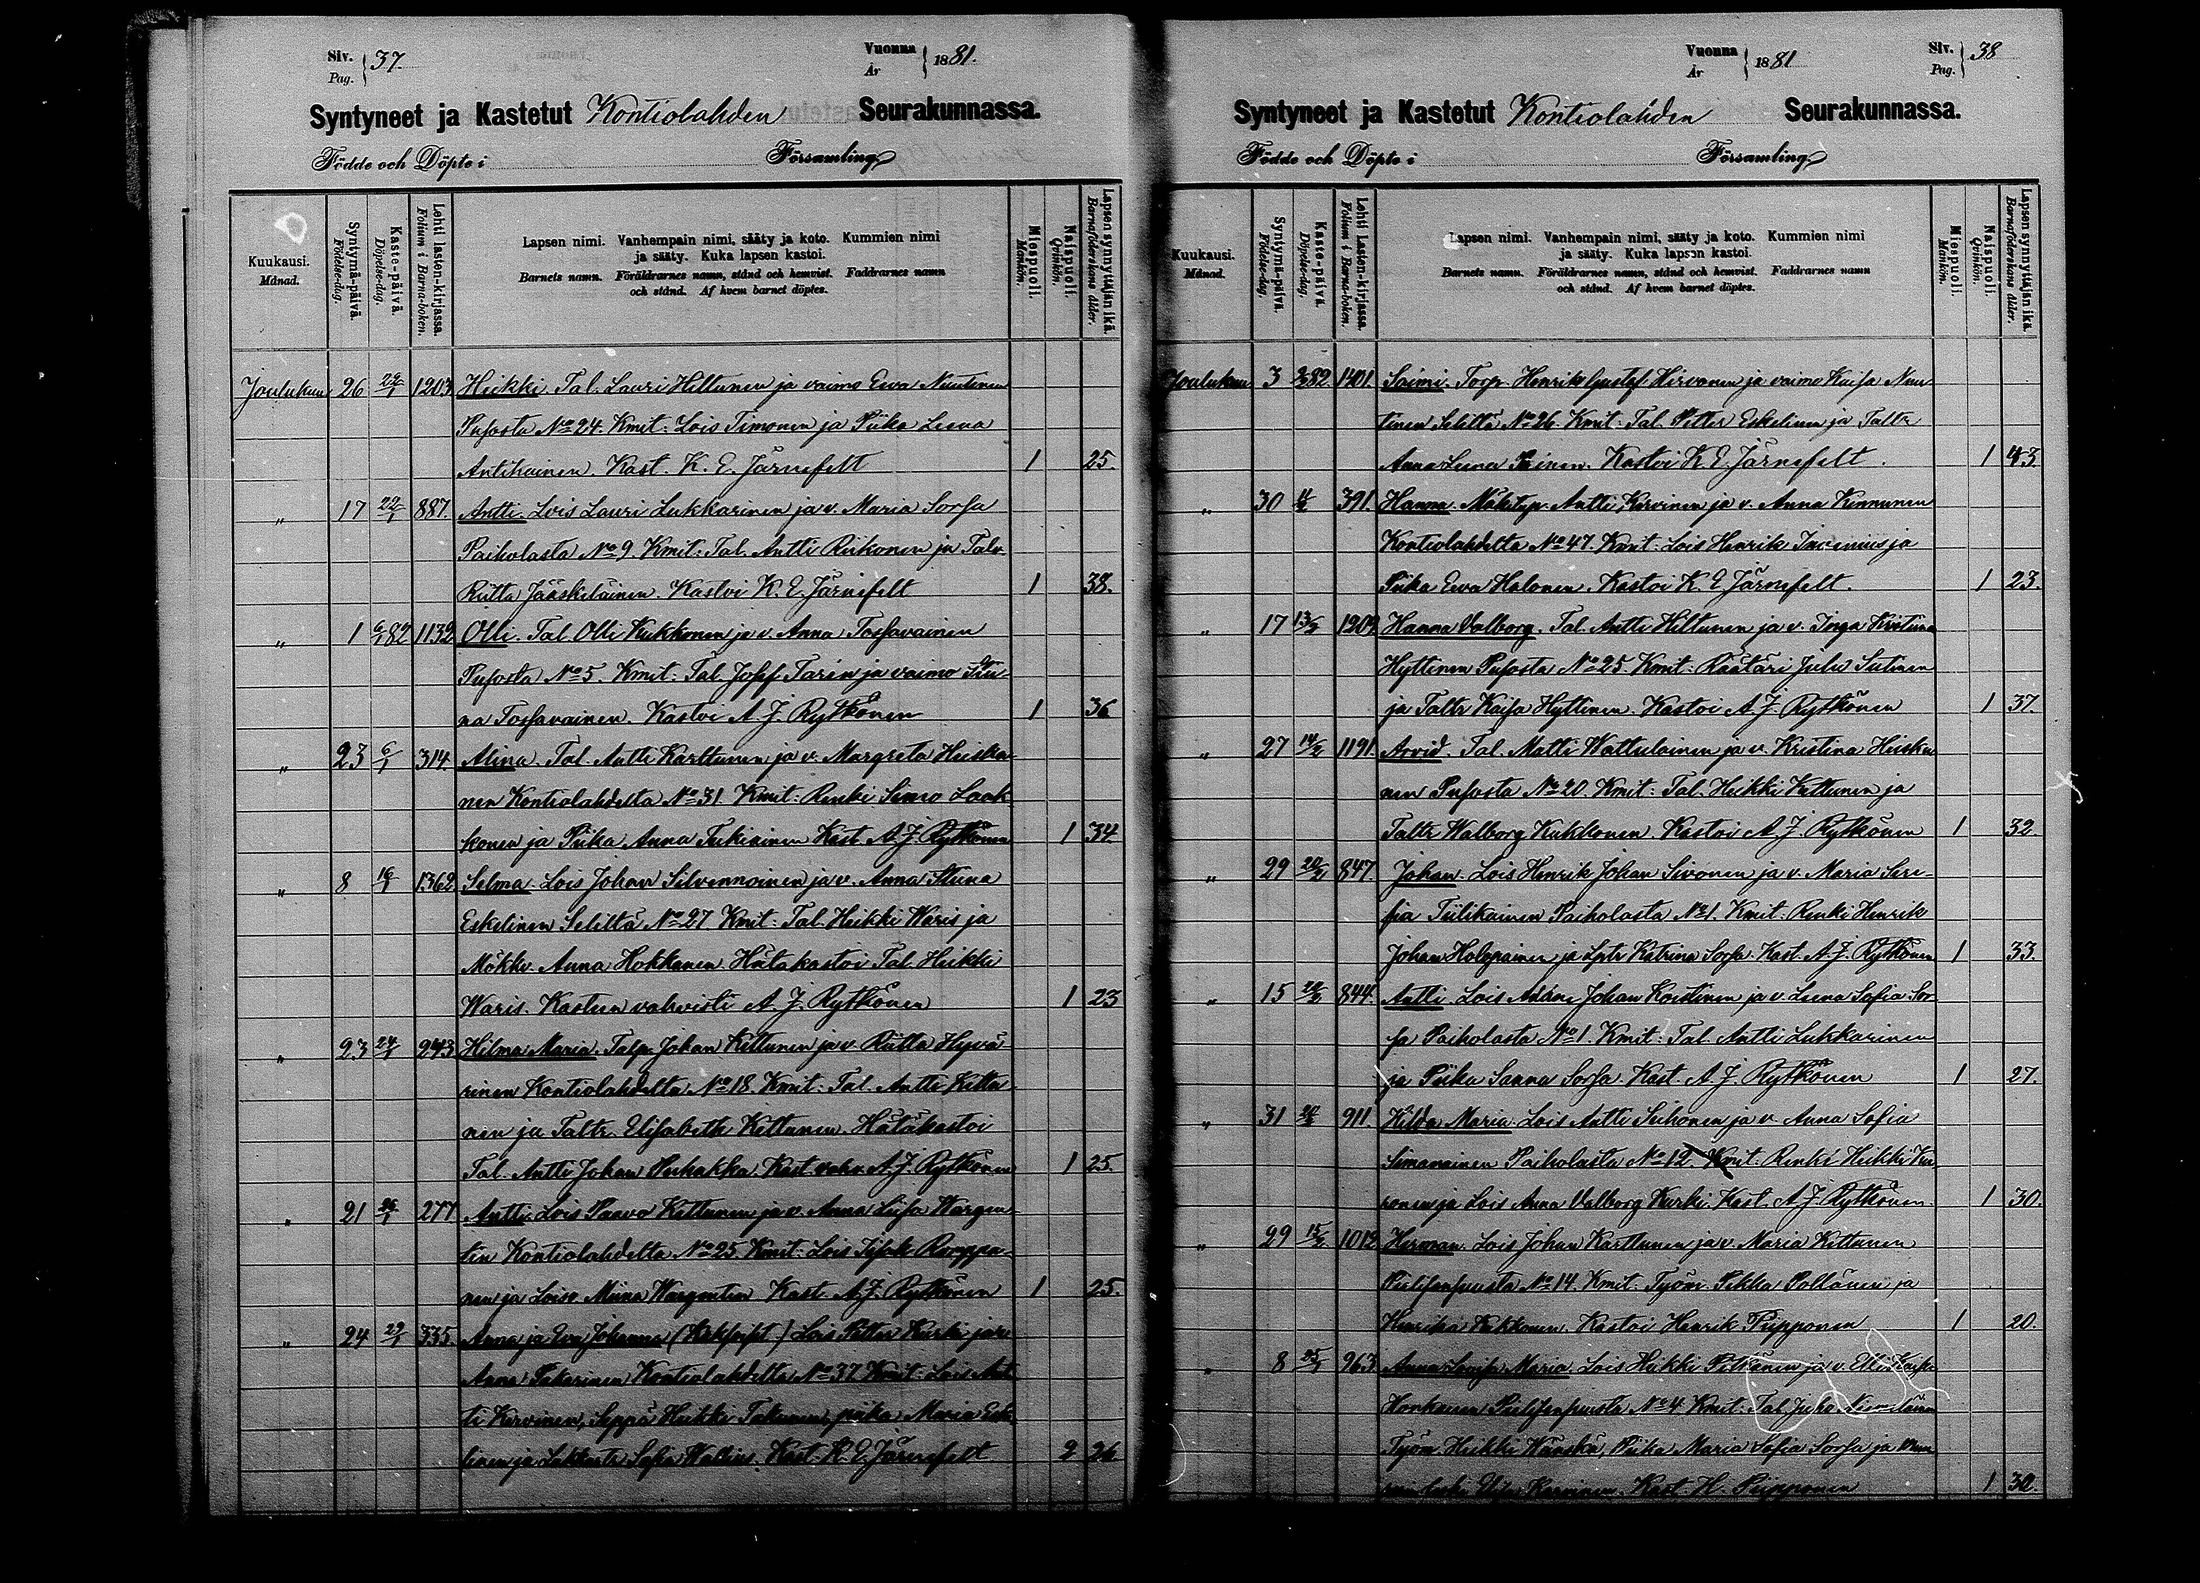 Siv. 37.
Pag.
Vuonna 1881.
År
Syntyneet ja Kastetut Kontiolahden Seurakunnassa.
Födde och Döpte i Församling
Kuukausi.
Månad.
Syntymä-päivä.
Födelse-dag.
Kaste-päivä.
Döpelse-dag.
Lehti lasten-kirjassa.
Folium i Barna-boken.
Lapsen nimi. Vanhempain nimi, sääty ja koto. Kummien nimi
ja sääty. Kuka lapsen kastoi.
Barnets namn. Föräldrarnes namn, stånd och hemvist. Faddrarnes namn
och stånd. Af hvem barnet döptes.
Miespuoli.
Mankön.
Naispuoli.
Qvinkön.
Lapsen synnyttäjän ikä.
Barnaföderskans ålder.
Joulukuu 26 29/1 1203 Heikki. Tal. Lauri Hiltunen ja vaimo Ewa Nuutinen
Pusosta No 24. Kmit: Lois Timonen ja Piika Leena
Antikainen. Kast. K. E. Järnefelt 1 25.
" 17 22/1 887. Antti. Lois Lauri Lukkarinen ja v. Maria Sorsa
Paiholasta No 9. Kmit: Tal. Antti Riikonen ja Talv.
Riitta Jääskeläinen. Kastoi K. E. Järnefelt 1 38.
" 1 6/1 82 1132 Olli. Tal. Olli Kukkonen ja v. Anna Tossavainen
Pusosta No 5. Kmit: Tal. Josef Tarin ja vaimo Stii-
na Tossavainen. Kastoi A. J. Rytkönen 1 36
" 23 6/1 314. Alina. Tal. Antti Karttunen ja v. Margreta Heiska-
nen Kontiolahdelta No 31. Kmit: Renki Simo Laak-
konen ja Piika Anna Tukiainen Kast. A. J. Rytkönen 1 34.
" 8 16/1 1362 Selma. Lois Johan Silvennoinen ja v. Anna Stiina
Eskelinen Seliltä No 27 Kmit: Tal. Heikki Waris ja
Mökkv. Anna Hokkanen. Hätäkastoi Tal. Heikki
Waris. Kasteen vahvisti A. J. Rytkönen 1 23
" 23 24/1 243 Hilma Maria. Talp. Johan Kettunen ja v. Riitta Hyvä-
rinen Kontiolahdelta No 18. Kmit: Tal. Antti Kettu-
nen ja Taltr. Elisabeth Kettunen. Hätäkastoi
Tal. Antti Johan Puhakka. Kast. vahv. A. J. Rytkönen 1 25.
" 21 26/1 277 Antti. Lois Paavo Kettunen ja v. Anna Liisa Wargen-
tin Kontiolahdelta No 25. Kmit: Lois Roppo-
nen ja Loisv. Miina Wargentin Kast. A. J. Rytkönen 1 25.
" 24 29/1 335 Anna ja Eva Johanna Lois Petter Kurki ja v.
Anna Pakarinen Kontiolahdelta No 37. Kmit: Lois Ant-
ti Kervinen, Seppä Heikki Takunen, piika Maria Eske-
linen ja Sofia Wallius. Kast. K. E. Järnefelt 2 26
Vuonna 1881
År
Siv. 38
Pag.
Syntyneet ja Kastetut Kontiolahden Seurakunnassa.
Födde och Döpte i Församling
Kuukausi.
Månad.
Syntymä-päivä.
Födelse-dag.
Kaste-päivä.
Döpelse-dag.
Lehti Lasten-kirjassa.
Folium i Barna-boken.
Lapsen nimi. Vanhempain nimi, sääty ja koto. Kummien nimi
ja sääty. Kuka lapsen kastoi.
Barnets namn. Föräldrarnes namn, stånd och hemvist. Faddrarnes namn
och stånd. Af hvem barnet döptes.
Miespuoli.
Mankön.
Naispuoli.
Qvinkön.
Lapsen synnyttäjän ikä.
Barnaföderskans ålder.
Joulukuu 3 82 1401. Saimi. Torp. Henrik Gustaf Hirvonen ja vaimo Kaisa Nuu-
tinen Seliltä No 26. Kmit: Tal. Petter Eskelinen ja Taltr.
Anna Leena Kastoi K. E. Järnefelt. 1 43.
" 30 391. Hanna. Mökityp. Antti Kervinen ja v. Anna Kinnunen
Kontiolahdelta No 47. Kmit: Lois Henrik ja
Piika Ewa Halonen. Kastoi K. E. Järnefelt. 1 23.
" 17 13/2 1209. Hanna Valborg. Tal. Antti Hiltunen ja v. Inga Kristiina
Hyttinen Pusosta No 25. Kmit: Räätäri Juho Sutinen
ja Taltr. Kaisa Hyttinen. Kastoi A. J. Rytkönen 1 37.
" 27 14/2 1191. Arvid. Tal. Matti Wattulainen ja v. Kristina Heiska-
nen Pusosta No 20. Kmit: Tal. Heikki Kettunen ja
Taltr. Walborg Kukkonen. Kastoi A. J. Rytkönen 1 32.
" 29 20/2 847. Johan. Lois Henrik Johan Sivonen ja v. Maria
Tiilikainen Paiholasta No 1. Kmit: Renki Henrik
Johan Holopainen ja Lptr. Katrina Sorsa. Kast. A. J. Rytkönen 1 33.
" 15 844. Antti. Lois Adam Johan Koistinen ja v. Leena Sofia Sor-
sa Paiholasta No 1. Kmit: Tal. Antti Lukkarinen
ja Piika Sanna Sorsa. Kast. A. J. Rytkönen 1 27.
" 31 911. Hilda Maria. Lois Antti Seihonen ja v. Anna Sofia
Simanainen Paiholasta No 12. Kmit: Renki Heikki
ja Lois Anna Valborg Kurki. Kast. A. J. Rytkönen. 1 30.
" 29 15/2 1012 Herman. Lois Johan Karttunen ja v. Maria Kettunen
No 14. Kmit: Työm. Pekka Pollänen ja
Henrika Kukkonen. Kastoi Henrik Piipponen 1 20.
" 8 963. Anna Lovisa Maria. Lois Heikki Pitkänen ja v.
Honkanen No 4. Kmit: Tal. Juho
Työm. Heikki Piika Maria Sofia Sorsa ja
Karvinen. Kast. H. Piipponen 1 30.